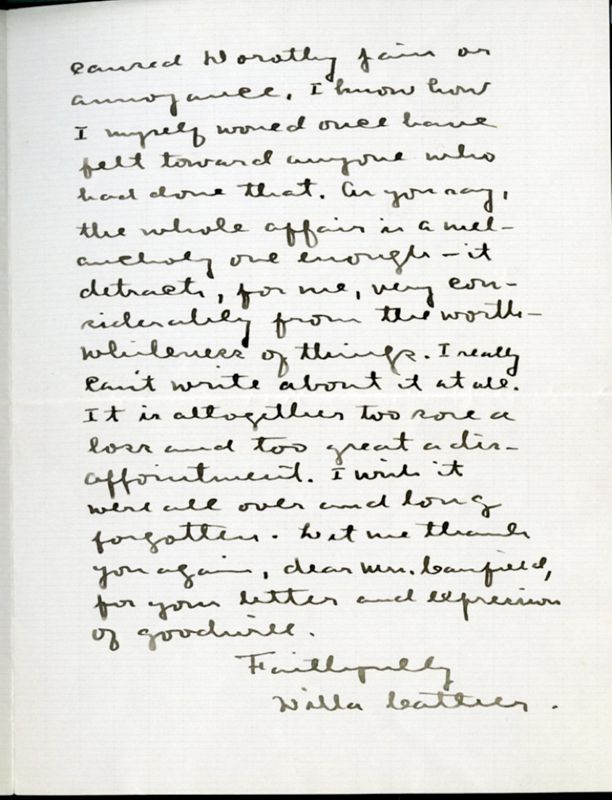 caused Dorothy pain or
annoyance. I know how
I myself would once have
felt toward anyone who
had done that. As you say,
the whole affair is a mel-
ancholy one enough - it
detracts, for me, very con-
siderably from the worth-
whileness of things. I really
can't write about it at all.
It is altogether too sore a
loss and too great a dis-
appointment. I wish it
were all over and long
forgotten. Let me thank
you again, dear Mrs. Canfield,
for your letter and expression
of goodwill.
Faithfully
Willa Cather.